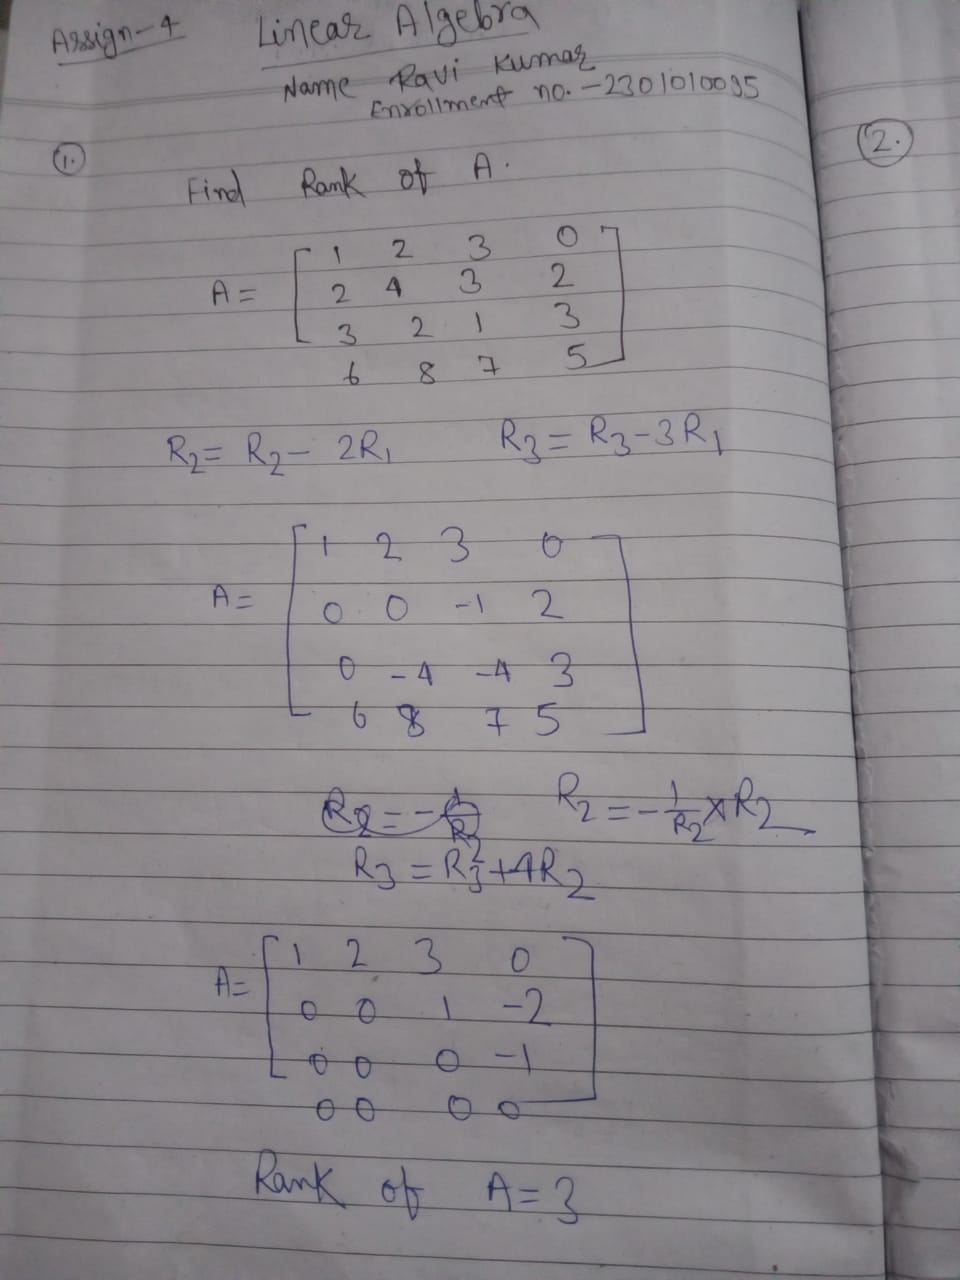 Assign-4 Linear Algebra
Name Ravi Kumar
Enrollment no. - 2301010095
1.
2.
Find Rank of A.
A = [ 1 2 3 0
2 4 3 2
3 2 1 3
6 8 7 5 ]
R2 = R2 - 2R1 R3 = R3 - 3R1
A = [ 1 2 3 0
0 0 -1 2
0 -4 -4 3
6 8 7 5 ]
R2 = -1/R2 × R2
R3 = R3 + 4R2
A = [ 1 2 3 0
0 0 1 -2
0 0 0 -1
0 0 0 0 ]
Rank of A = 3